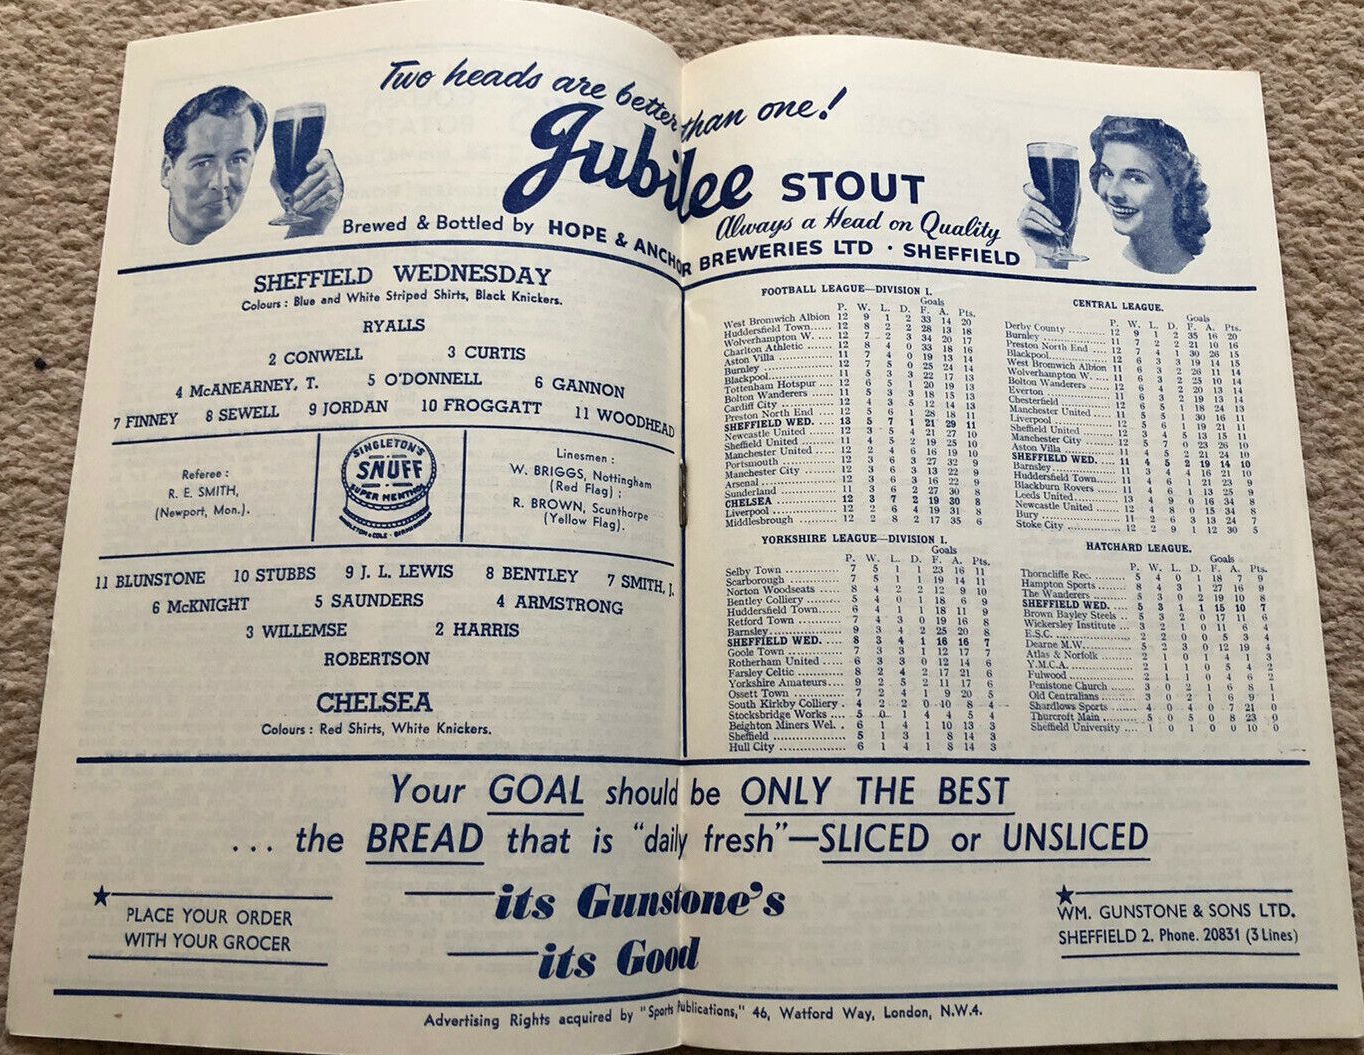 Two heads are better than one!
Jubilee STOUT
Always a Head on Quality
Brewed & Bottled by HOPE & ANCHOR BREWERIES LTD · SHEFFIELD
SHEFFIELD WEDNESDAY
Colours : Blue and White Striped Shirts, Black Knickers.
RYALLS
2 CONWELL 3 CURTIS
4 McANEARNEY, T. 5 O'DONNELL 6 GANNON
7 FINNEY 8 SEWELL 9 JORDAN 10 FROGGATT 11 WOODHEAD
Referee :
R. E. SMITH,
(Newport, Mon.).
SINGLETON'S
SNUFF
SUPER MENTHOL
Linesmen :
W. BRIGGS, Nottingham
(Red Flag) ;
R. BROWN, Scunthorpe
(Yellow Flag).
11 BLUNSTONE 10 STUBBS 9 J. L. LEWIS 8 BENTLEY 7 SMITH, J.
6 McKNIGHT 5 SAUNDERS 4 ARMSTRONG
3 WILLEMSE 2 HARRIS
ROBERTSON
CHELSEA
Colours : Red Shirts, White Knickers.
FOOTBALL LEAGUE—DIVISION I.
Goals
P. W. L. D. F. A. Pts.
West Bromwich Albion 12 9 1 2 33 14 20
Huddersfield Town...... 12 8 2 2 28 13 18
Wolverhampton W. .... 12 7 2 3 34 20 17
Charlton Athletic ........ 12 8 4 0 33 18 16
Aston Villa ................ 11 7 4 0 19 13 14
Burnley .................... 12 7 5 0 25 24 14
Blackpool.................. 11 5 3 3 22 17 13
Tottenham Hotspur .... 12 6 5 1 20 19 13
Bolton Wanderers........ 11 5 3 3 18 15 13
Cardiff City ................ 12 4 3 5 12 14 13
Preston North End ...... 12 5 6 1 28 18 11
SHEFFIELD WED. .... 13 5 7 1 21 29 11
Newcastle United ........ 12 3 5 4 21 27 10
Sheffield United .......... 11 4 5 2 19 25 10
Manchester United ...... 12 2 4 6 16 19 10
Portsmouth ................ 12 3 6 3 27 32 9
Manchester City .......... 12 3 6 3 13 22 9
Arsenal .................... 12 3 6 3 16 22 9
Sunderland ................ 11 3 6 2 27 30 8
CHELSEA ................ 12 3 7 2 19 30 8
Liverpool .................. 12 2 6 4 19 31 8
Middlesbrough ............ 12 2 8 2 17 35 6
CENTRAL LEAGUE.
Goals
P. W. L. D. F. A. Pts.
Derby County ............ 12 9 1 2 35 16 20
Burnley .................... 11 7 2 2 21 10 16
Preston North End ...... 12 7 4 1 30 26 15
Blackpool.................. 12 6 3 3 19 14 15
West Bromwich Albion 11 6 3 2 26 11 14
Wolverhampton W. .... 11 6 3 2 25 10 14
Bolton Wanderers........ 12 6 4 2 20 13 14
Everton .................... 11 6 3 2 19 13 14
Chesterfield ................ 12 6 5 1 18 24 13
Manchester United ...... 11 5 5 1 30 16 11
Liverpool .................. 12 5 6 1 19 21 11
Sheffield United .......... 12 3 4 5 13 15 11
Manchester City .......... 12 5 7 0 23 26 10
Aston Villa ................ 11 4 5 2 21 24 10
SHEFFIELD WED. .... 11 4 5 2 19 14 10
Barnsley .................... 11 3 4 4 16 21 10
Huddersfield Town...... 11 4 6 1 21 23 9
Blackburn Rovers ........ 11 4 6 1 13 25 9
Leeds United.............. 13 4 9 0 16 34 8
Newcastle United ........ 12 4 8 0 15 34 8
Bury ........................ 11 2 6 3 13 24 7
Stoke City .................. 12 2 9 1 12 30 5
YORKSHIRE LEAGUE—DIVISION I.
Goals
P. W. L. D. F. A. Pts.
Selby Town ................ 7 5 1 1 23 16 11
Scarborough .............. 7 5 1 1 19 14 11
Norton Woodseats ...... 8 4 2 2 12 9 10
Bentley Colliery .......... 5 4 0 1 18 6 9
Huddersfield Town...... 6 4 1 1 18 11 9
Retford Town ............ 7 4 3 0 19 16 8
Barnsley .................... 9 3 4 2 25 20 8
SHEFFIELD WED. .... 8 3 4 1 16 16 7
Goole Town ................ 7 3 3 1 12 17 7
Rotherham United ...... 6 3 3 0 12 14 6
Farsley Celtic .............. 8 2 4 2 17 21 6
Yorkshire Amateurs .... 9 2 5 2 11 17 6
Ossett Town .............. 7 2 4 1 9 20 5
South Kirkby Colliery . 4 2 2 0 10 8 4
Stocksbridge Works .... 5 0 1 4 4 5 4
Beighton Miners Wel. .. 6 1 4 1 10 13 3
Sheffield .................... 5 1 3 1 8 14 3
Hull City .................... 6 1 4 1 8 14 3
HATCHARD LEAGUE.
Goals
P. W. L. D. F. A. Pts.
Thorncliffe Rec. .......... 5 4 0 1 18 7 9
Hampton Sports .......... 8 4 3 1 27 16 9
The Wanderers ............ 5 3 0 2 19 10 8
SHEFFIELD WED. .... 5 3 1 1 15 10 7
Brown Bayley Steels .. 5 3 2 0 17 11 6
Wickersley Institute .... 3 2 1 0 11 6 4
E.S.C. ...................... 2 2 0 0 5 3 4
Dearne M.W............... 5 2 3 0 12 19 4
Atlas & Norfolk .......... 2 1 0 1 4 1 3
Y.M.C.A. .................. 2 1 1 0 5 4 2
Fulwood .................... 2 1 1 0 4 6 2
Penistone Church ........ 3 0 2 1 6 8 1
Old Centralians .......... 3 0 2 1 6 9 1
Shardlows Sports ........ 4 0 4 0 7 21 0
Thurcroft Main .......... 5 0 5 0 8 23 0
Sheffield University .... 1 0 1 0 0 10 0
Your GOAL should be ONLY THE BEST
... the BREAD that is "daily fresh"—SLICED or UNSLICED
—its Gunstone's
—its Good
PLACE YOUR ORDER
WITH YOUR GROCER
WM. GUNSTONE & SONS LTD.
SHEFFIELD 2. Phone. 20831 (3 Lines)
Advertising Rights acquired by "Sports Publications," 46, Watford Way, London, N.W.4.